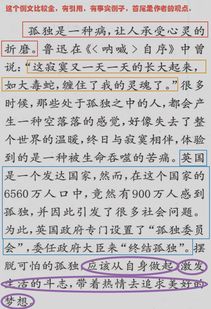 这个例文比较全，有引用，有事实例子，首尾是作者的观点。
孤独是一种病，让人承受心灵的
折磨。鲁迅在《〈呐喊〉自序》中曾
说：“这寂寞又一天一天的长大起来，
如大毒蛇，缠住了我的灵魂了。”很多
时候，那些处于孤独之中的人，都会产
生一种空落落的感觉，好像失去了整
个世界的温暖，终日与寂寞相伴，体验
到的是一种被生命吞噬的苦痛。英国
是一个发达国家，然而，在这个国家的
6560万人口中，竟然有900万人感到
孤独，并因此引发了很多社会问题。
为此，英国政府专门设置了“孤独委员
会”，委任政府大臣来“终结孤独”。摆
脱可怕的孤独，应该从自身做起，激发
生活的斗志，带着热情去追求美好的
梦想